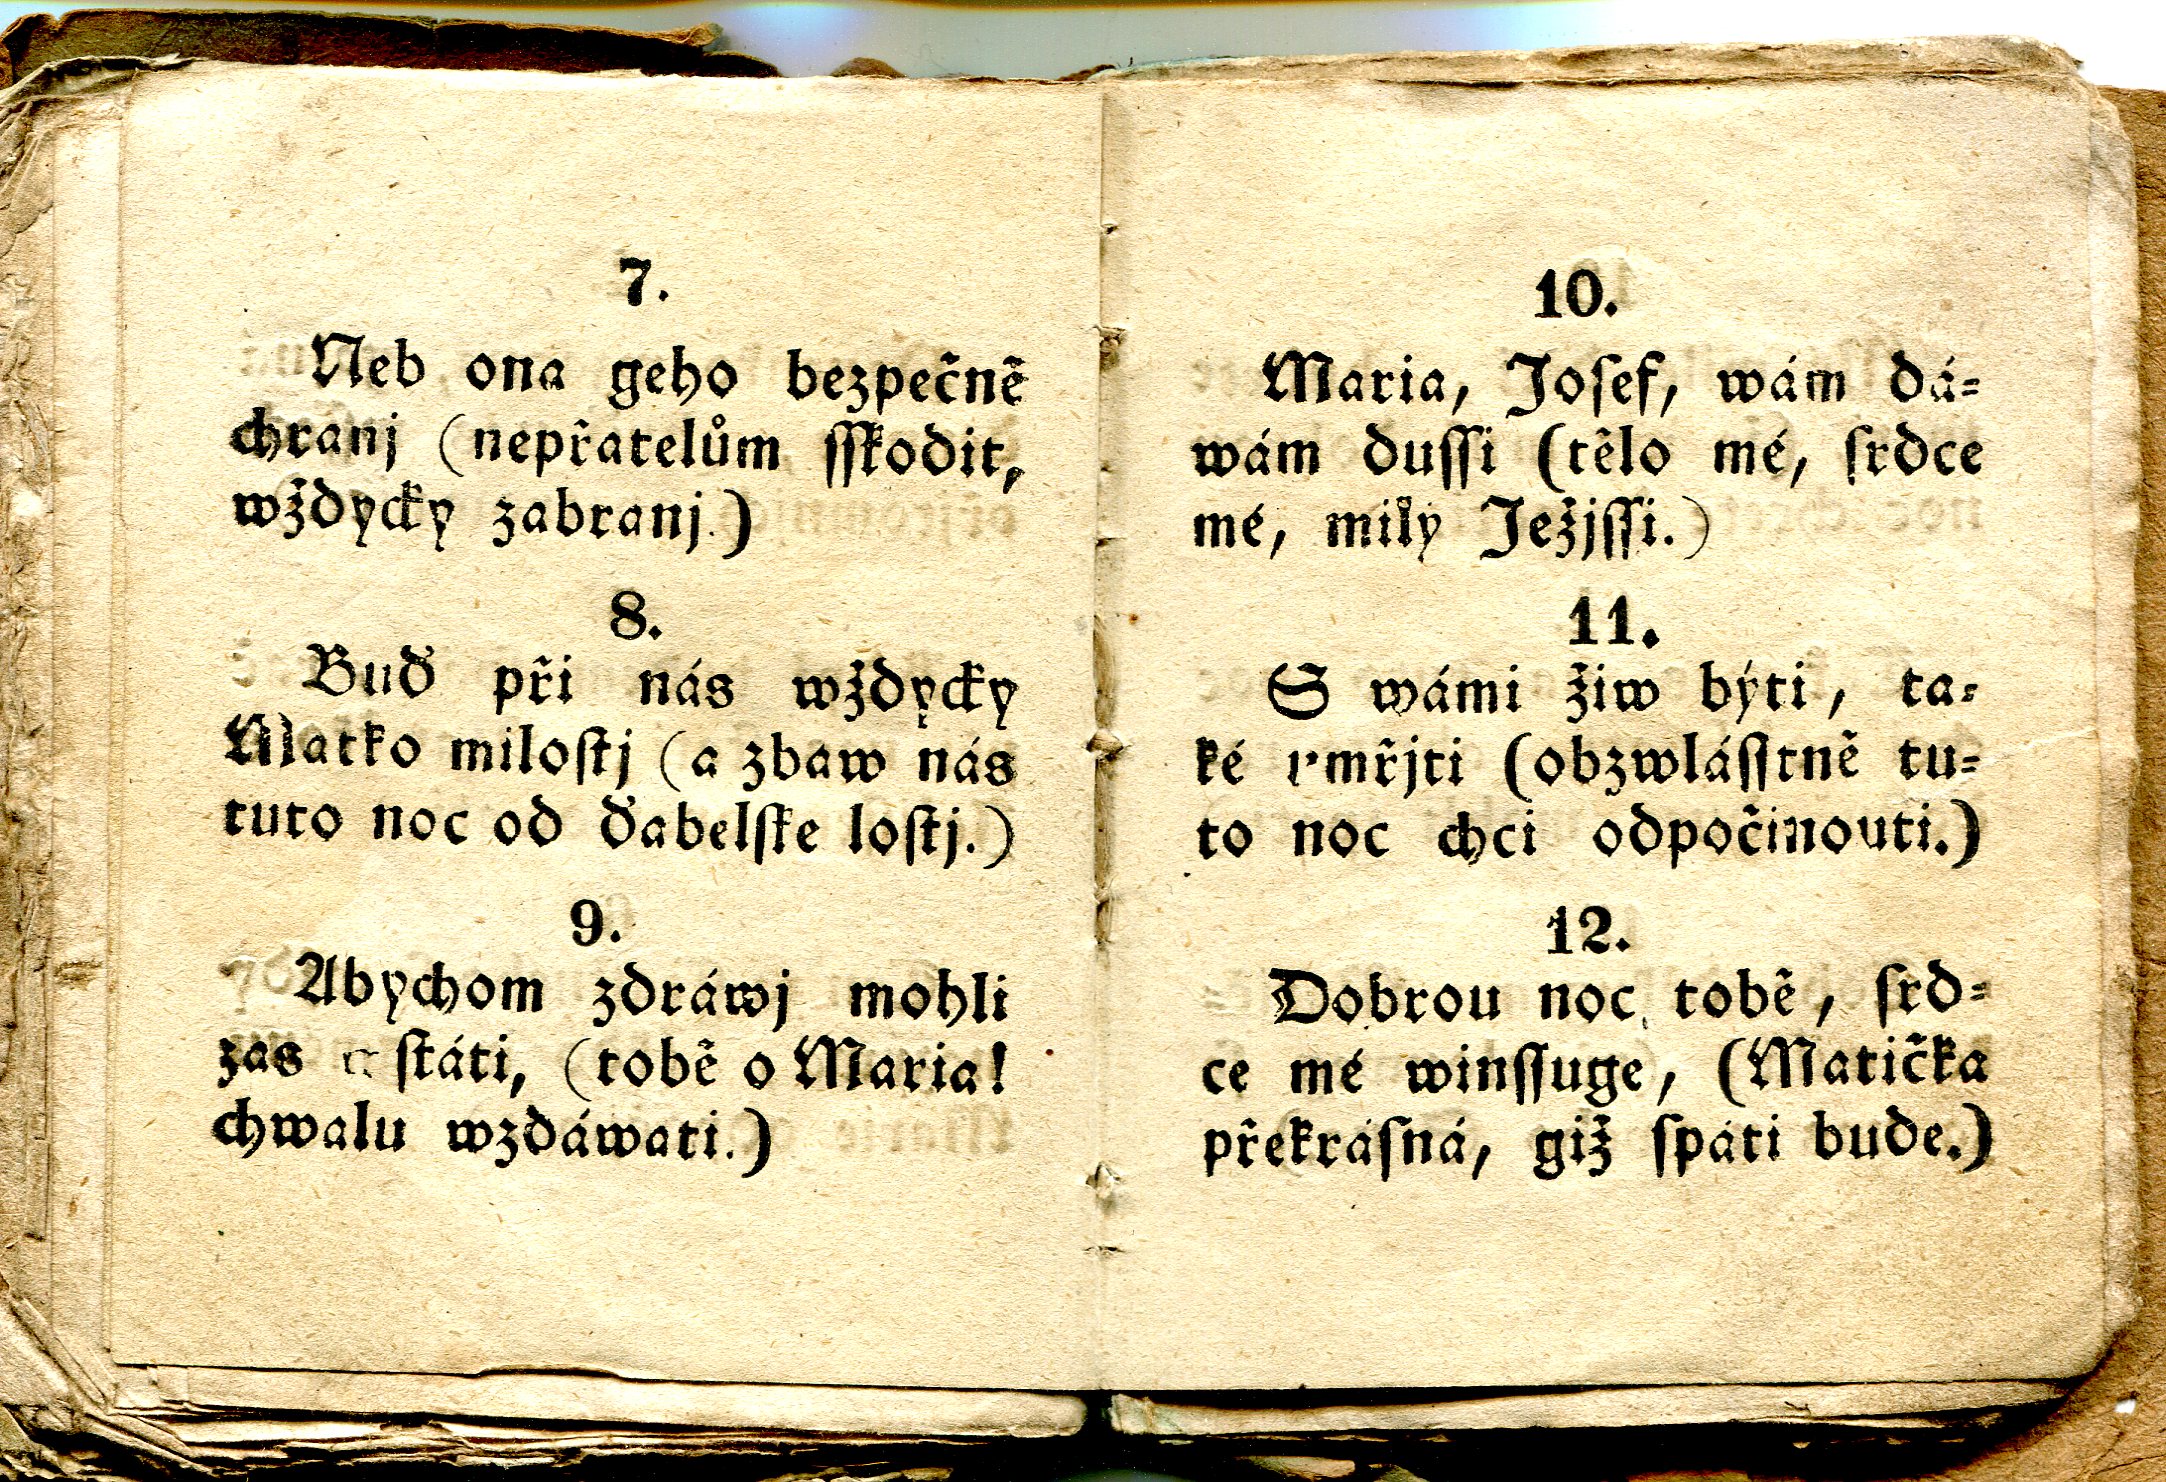 7.
Neb ona geho bezpečně
chranj (nepřatelům ſſkodit,
wždycky zabranj.)
8.
Buď při nás wždycky
Matko miloſtj (a zbaw nás
tuto noc od ďabelſke loſtj.)
9.
Abychom zdráwj mohli
zas ſtáti, (tobě o Maria!
chwalu wzdáwati.)
10.
Maria, Joſef, wám dá=
wám duſſi (tělo mé, ſrdce
mé, milý Ježjſſi.)
11.
S wámi žiw býti, ta=
ké vmřjti (obzwláſſtně tu=
to noc chci odpočinouti.)
12.
Dobrou noc tobě, ſrd=
ce mé winſſuge, (Matička
překráſná, giž ſpáti bude.)